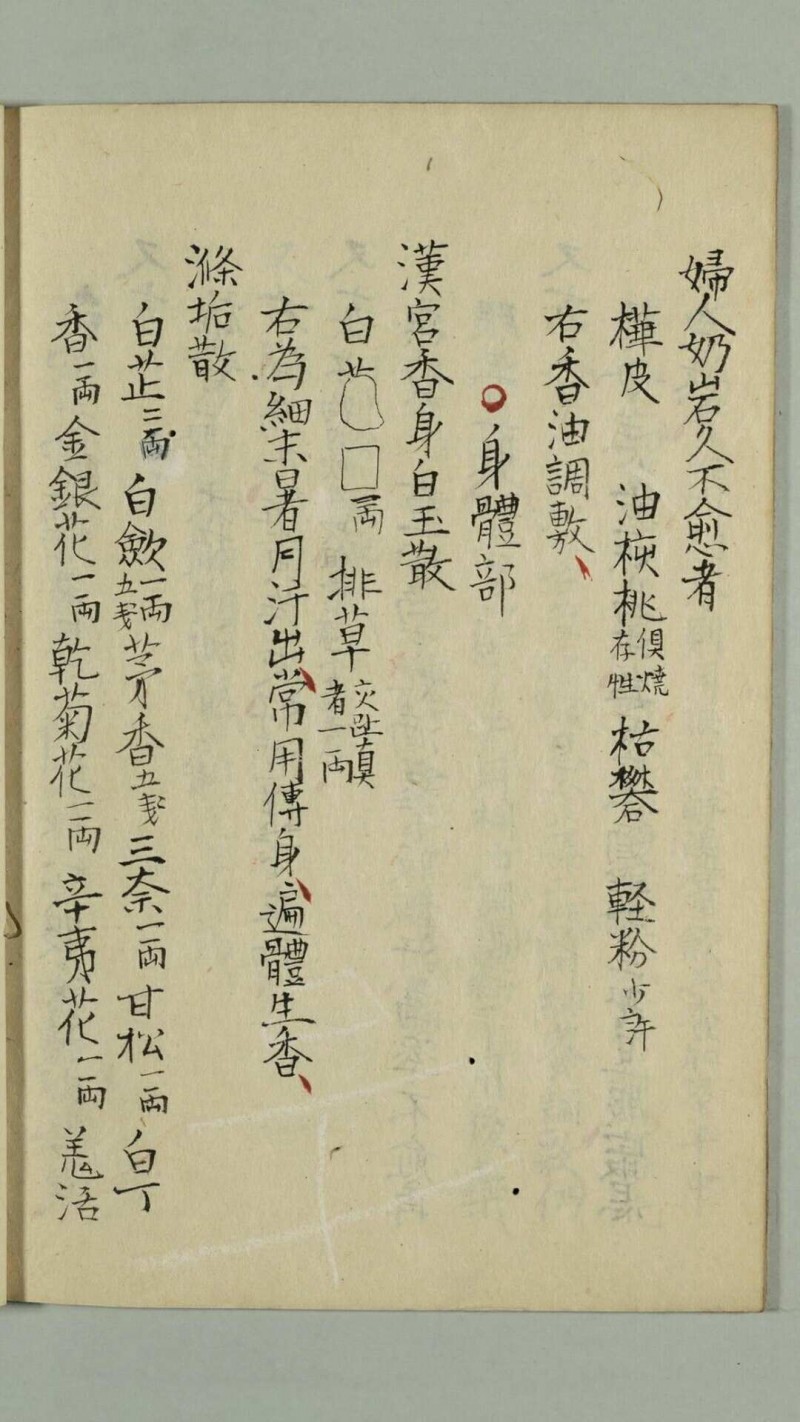 婦人奶岩久不愈者
樺皮 油核桃俱燒存性 枯礬 軽粉少許
右香油調敷
身體部
漢宮香身白玉散
白芷 一両 排草交趾真者一両
右為細末暑月汗出常用傅身遍體生香
滌垢散
白芷二両 白歛一両五戔 茅香五戔 三奈一両 甘松一両 白丁
香一両 金銀花一両 乾菊花一両 辛夷花一両 羗活